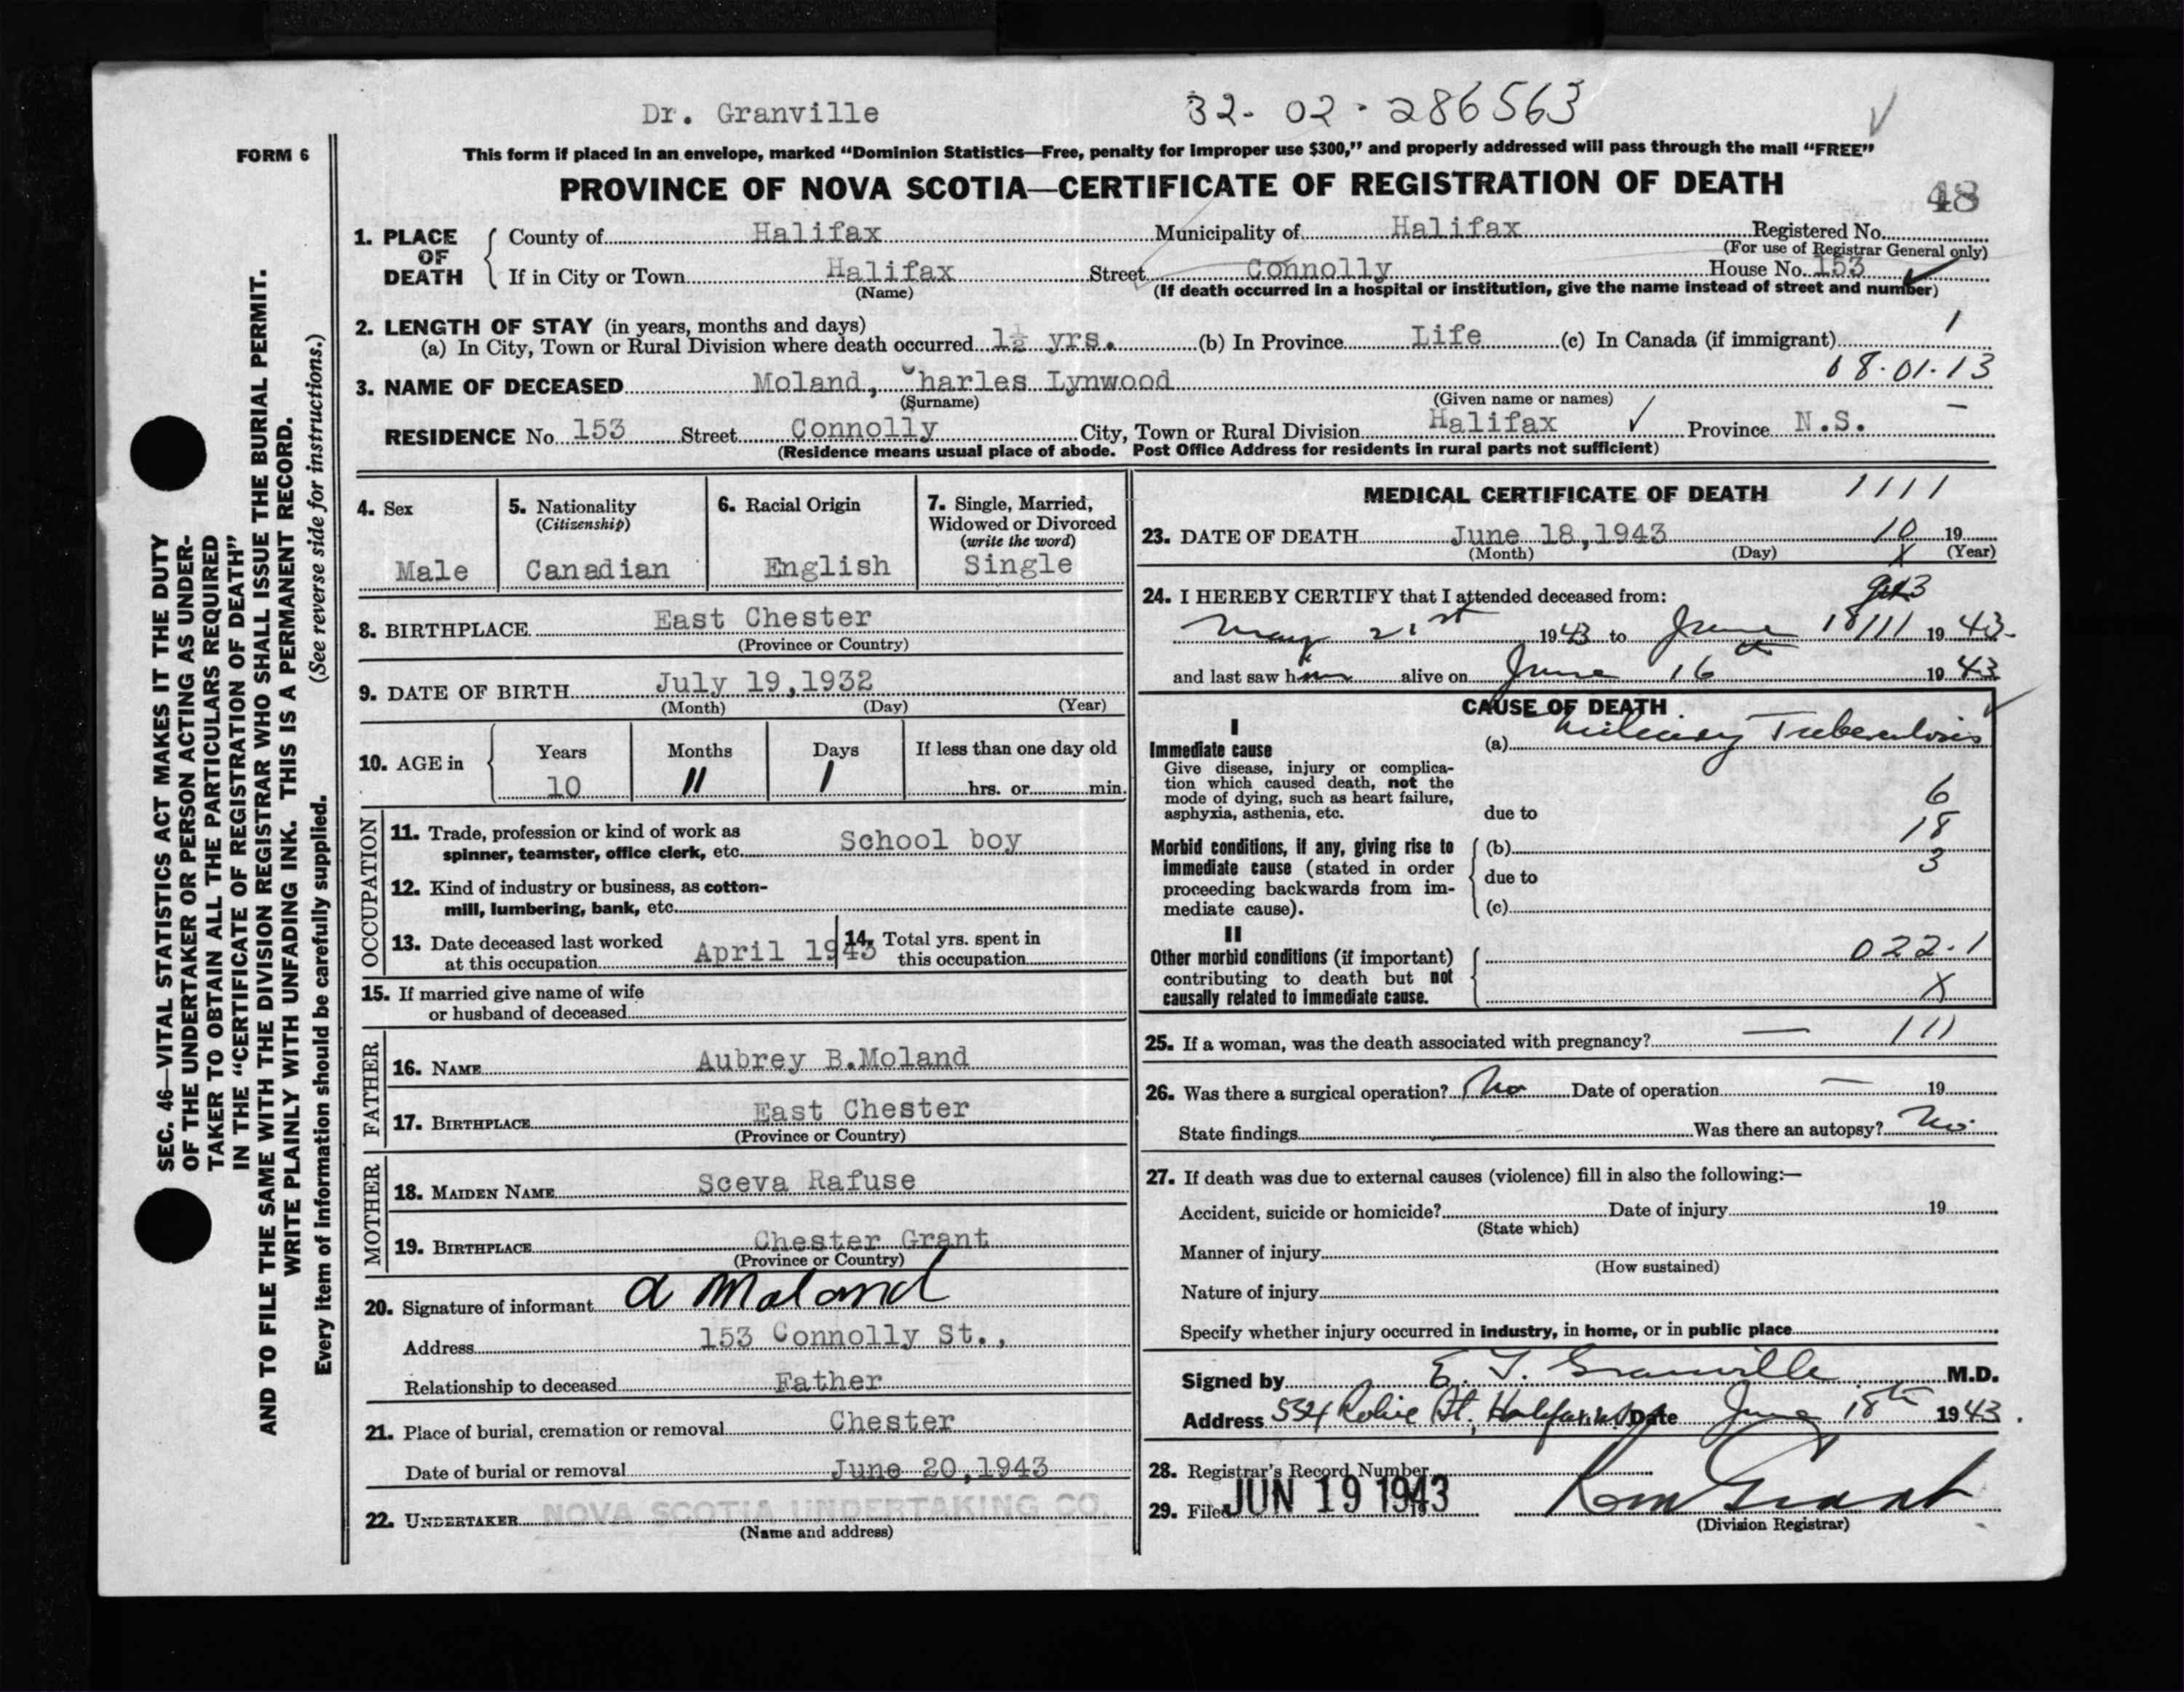 Dr. Granville
32-02-286563
FORM 6
This form if placed in an envelope, marked “Dominion Statistics—Free, penalty for improper use $300,” and properly addressed will pass through the mail “FREE”
PROVINCE OF NOVA SCOTIA—CERTIFICATE OF REGISTRATION OF DEATH
48
1. PLACE OF DEATH
County of Halifax Municipality of Halifax Registered No.
(For use of Registrar General only)
If in City or Town Halifax Street Connolly House No. 153
(Name) (If death occurred in a hospital or institution, give the name instead of street and number)
2. LENGTH OF STAY (in years, months and days)
(a) In City, Town or Rural Division where death occurred 1½ yrs. (b) In Province Life (c) In Canada (if immigrant) 1
08.01.13
3. NAME OF DECEASED Moland, Charles Lynwood
(Surname) (Given name or names)
RESIDENCE No. 153 Street Connolly City, Town or Rural Division Halifax Province N.S.
(Residence means usual place of abode. Post Office Address for residents in rural parts not sufficient)
4. Sex
Male
5. Nationality
(Citizenship)
Canadian
6. Racial Origin
English
7. Single, Married,
Widowed or Divorced
(write the word)
Single
8. BIRTHPLACE East Chester
(Province or Country)
9. DATE OF BIRTH July 19,1932
(Month) (Day) (Year)
10. AGE in
Years Months Days If less than one day old
10 11 1 hrs. or min.
OCCUPATION
11. Trade, profession or kind of work as
spinner, teamster, office clerk, etc. School boy
12. Kind of industry or business, as cotton-
mill, lumbering, bank, etc.
13. Date deceased last worked
at this occupation April 1943
14. Total yrs. spent in
this occupation
15. If married give name of wife
or husband of deceased
FATHER
16. NAME Aubrey B.Moland
17. BIRTHPLACE East Chester
(Province or Country)
MOTHER
18. MAIDEN NAME Sceva Rafuse
19. BIRTHPLACE Chester Grant
(Province or Country)
20. Signature of informant A Moland
Address 153 Connolly St.,
Relationship to deceased Father
21. Place of burial, cremation or removal Chester
Date of burial or removal June 20,1943
22. UNDERTAKER NOVA SCOTIA UNDERTAKING CO.
(Name and address)
MEDICAL CERTIFICATE OF DEATH 1111
23. DATE OF DEATH June 18,1943 10 19
(Month) (Day) X (Year)
24. I HEREBY CERTIFY that I attended deceased from:
May 21st 1943 to June 18 1943.
and last saw him alive on June 16th 1943
CAUSE OF DEATH
I
Immediate cause
Give disease, injury or complica-
tion which caused death, not the
mode of dying, such as heart failure,
asphyxia, asthenia, etc.
(a) Miliary Tuberculosis
6
due to
18
Morbid conditions, if any, giving rise to
immediate cause (stated in order
proceeding backwards from im-
mediate cause).
(b)
3
due to
(c)
II
Other morbid conditions (if important)
contributing to death but not
causally related to immediate cause.
022.1
X
25. If a woman, was the death associated with pregnancy? — 111
26. Was there a surgical operation? No Date of operation — 19
State findings — Was there an autopsy? No.
27. If death was due to external causes (violence) fill in also the following:—
Accident, suicide or homicide? Date of injury 19
(State which)
Manner of injury
(How sustained)
Nature of injury
Specify whether injury occurred in industry, in home, or in public place
Signed by E. T. Granville M.D.
Address 534 Robie St., Halifax, N.S. Date June 18th 1943.
28. Registrar's Record Number
29. Filed JUN 19 1943
(Division Registrar)
SEC. 46—VITAL STATISTICS ACT MAKES IT THE DUTY
OF THE UNDERTAKER OR PERSON ACTING AS UNDER-
TAKER TO OBTAIN ALL THE PARTICULARS REQUIRED
IN THE “CERTIFICATE OF REGISTRATION OF DEATH”
AND TO FILE THE SAME WITH THE DIVISION REGISTRAR WHO SHALL ISSUE THE BURIAL PERMIT.
WRITE PLAINLY WITH UNFADING INK. THIS IS A PERMANENT RECORD.
Every item of information should be carefully supplied. (See reverse side for instructions.)